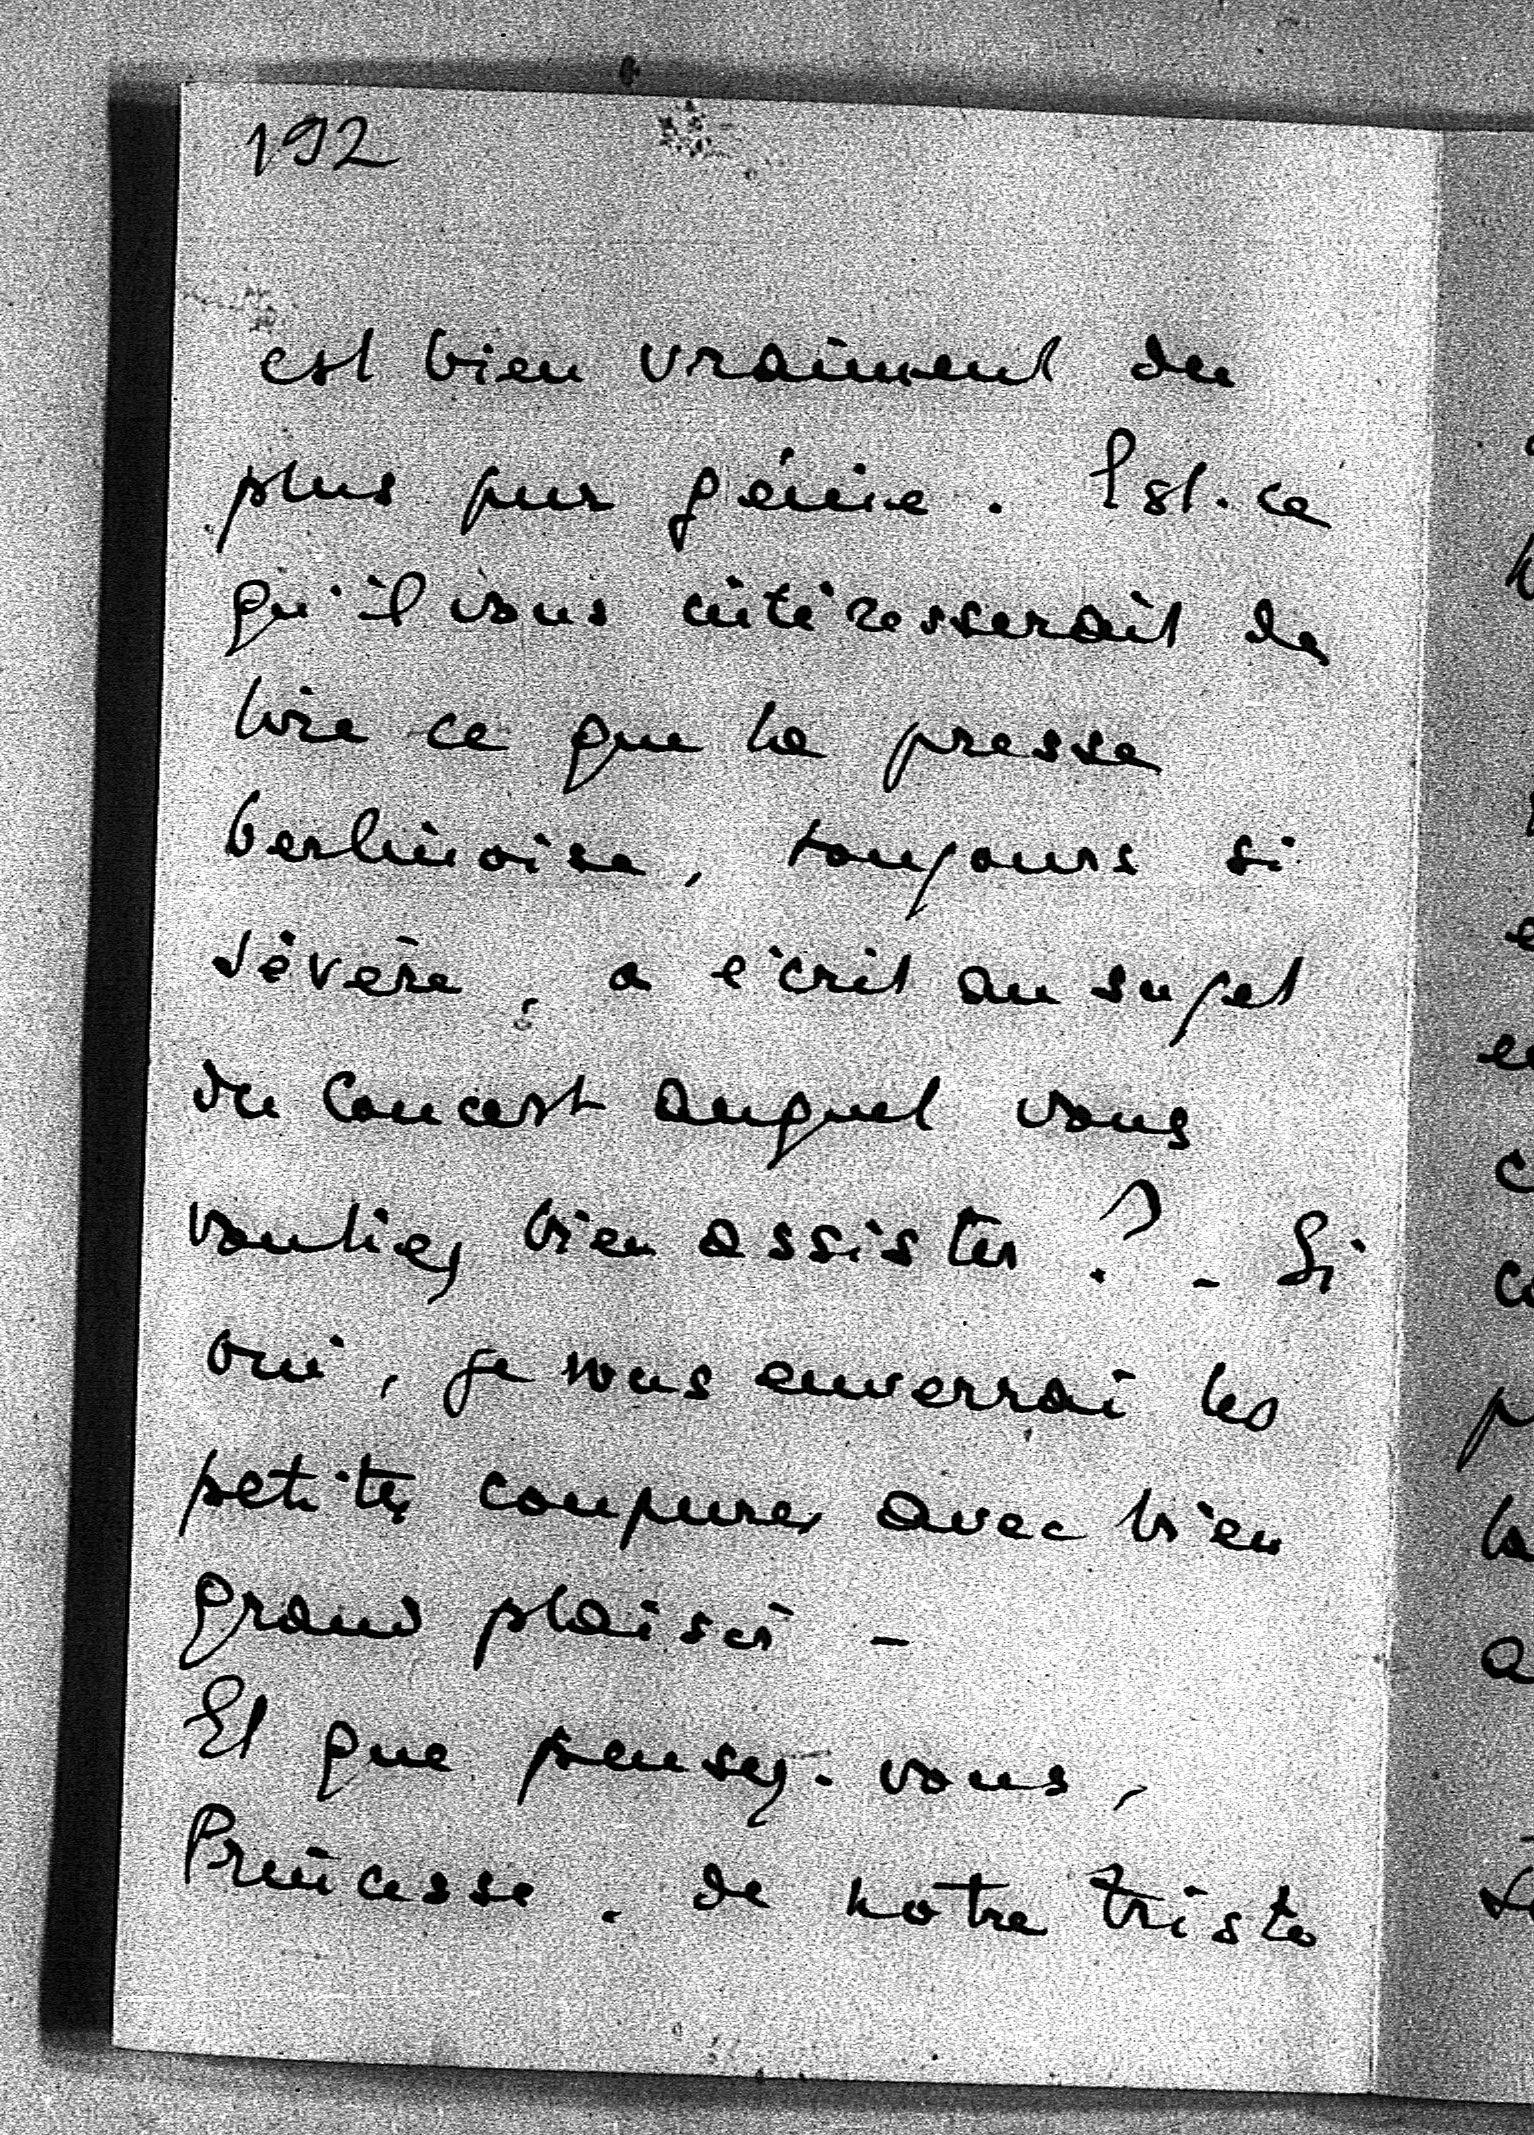 192
est bien vraiment du
plus pur génie. Est-ce
qu'il vous intéresserait de
lire ce que la presse
berlinoise, toujours si
sévère, a écrit au sujet
du Concert auquel vous
vouliez bien assister ? - Si
oui, je vous enverrai les
petites coupures avec bien
grand plaisir -
Et que pensez-vous,
Princesse, de notre triste